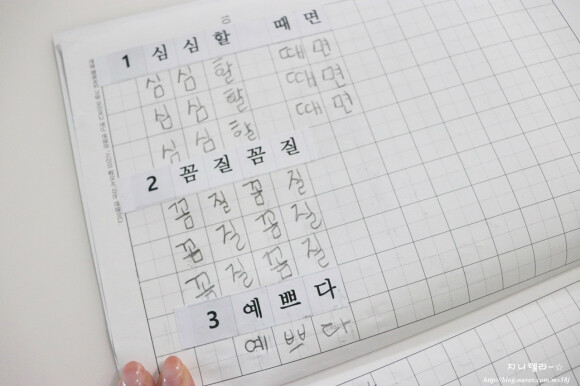 1 심심할 때면
심심할 때면
심심할 때면
심심할 때면
2 꼼질꼼질
꼼질꼼질
꼼질꼼질
꼼질꼼질
3 예쁘다
예쁘다
지니맘라~☆